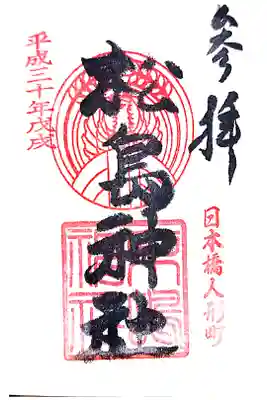 参拝
日本橋人形町
松島神社
平成三十年戊戌
松島神社